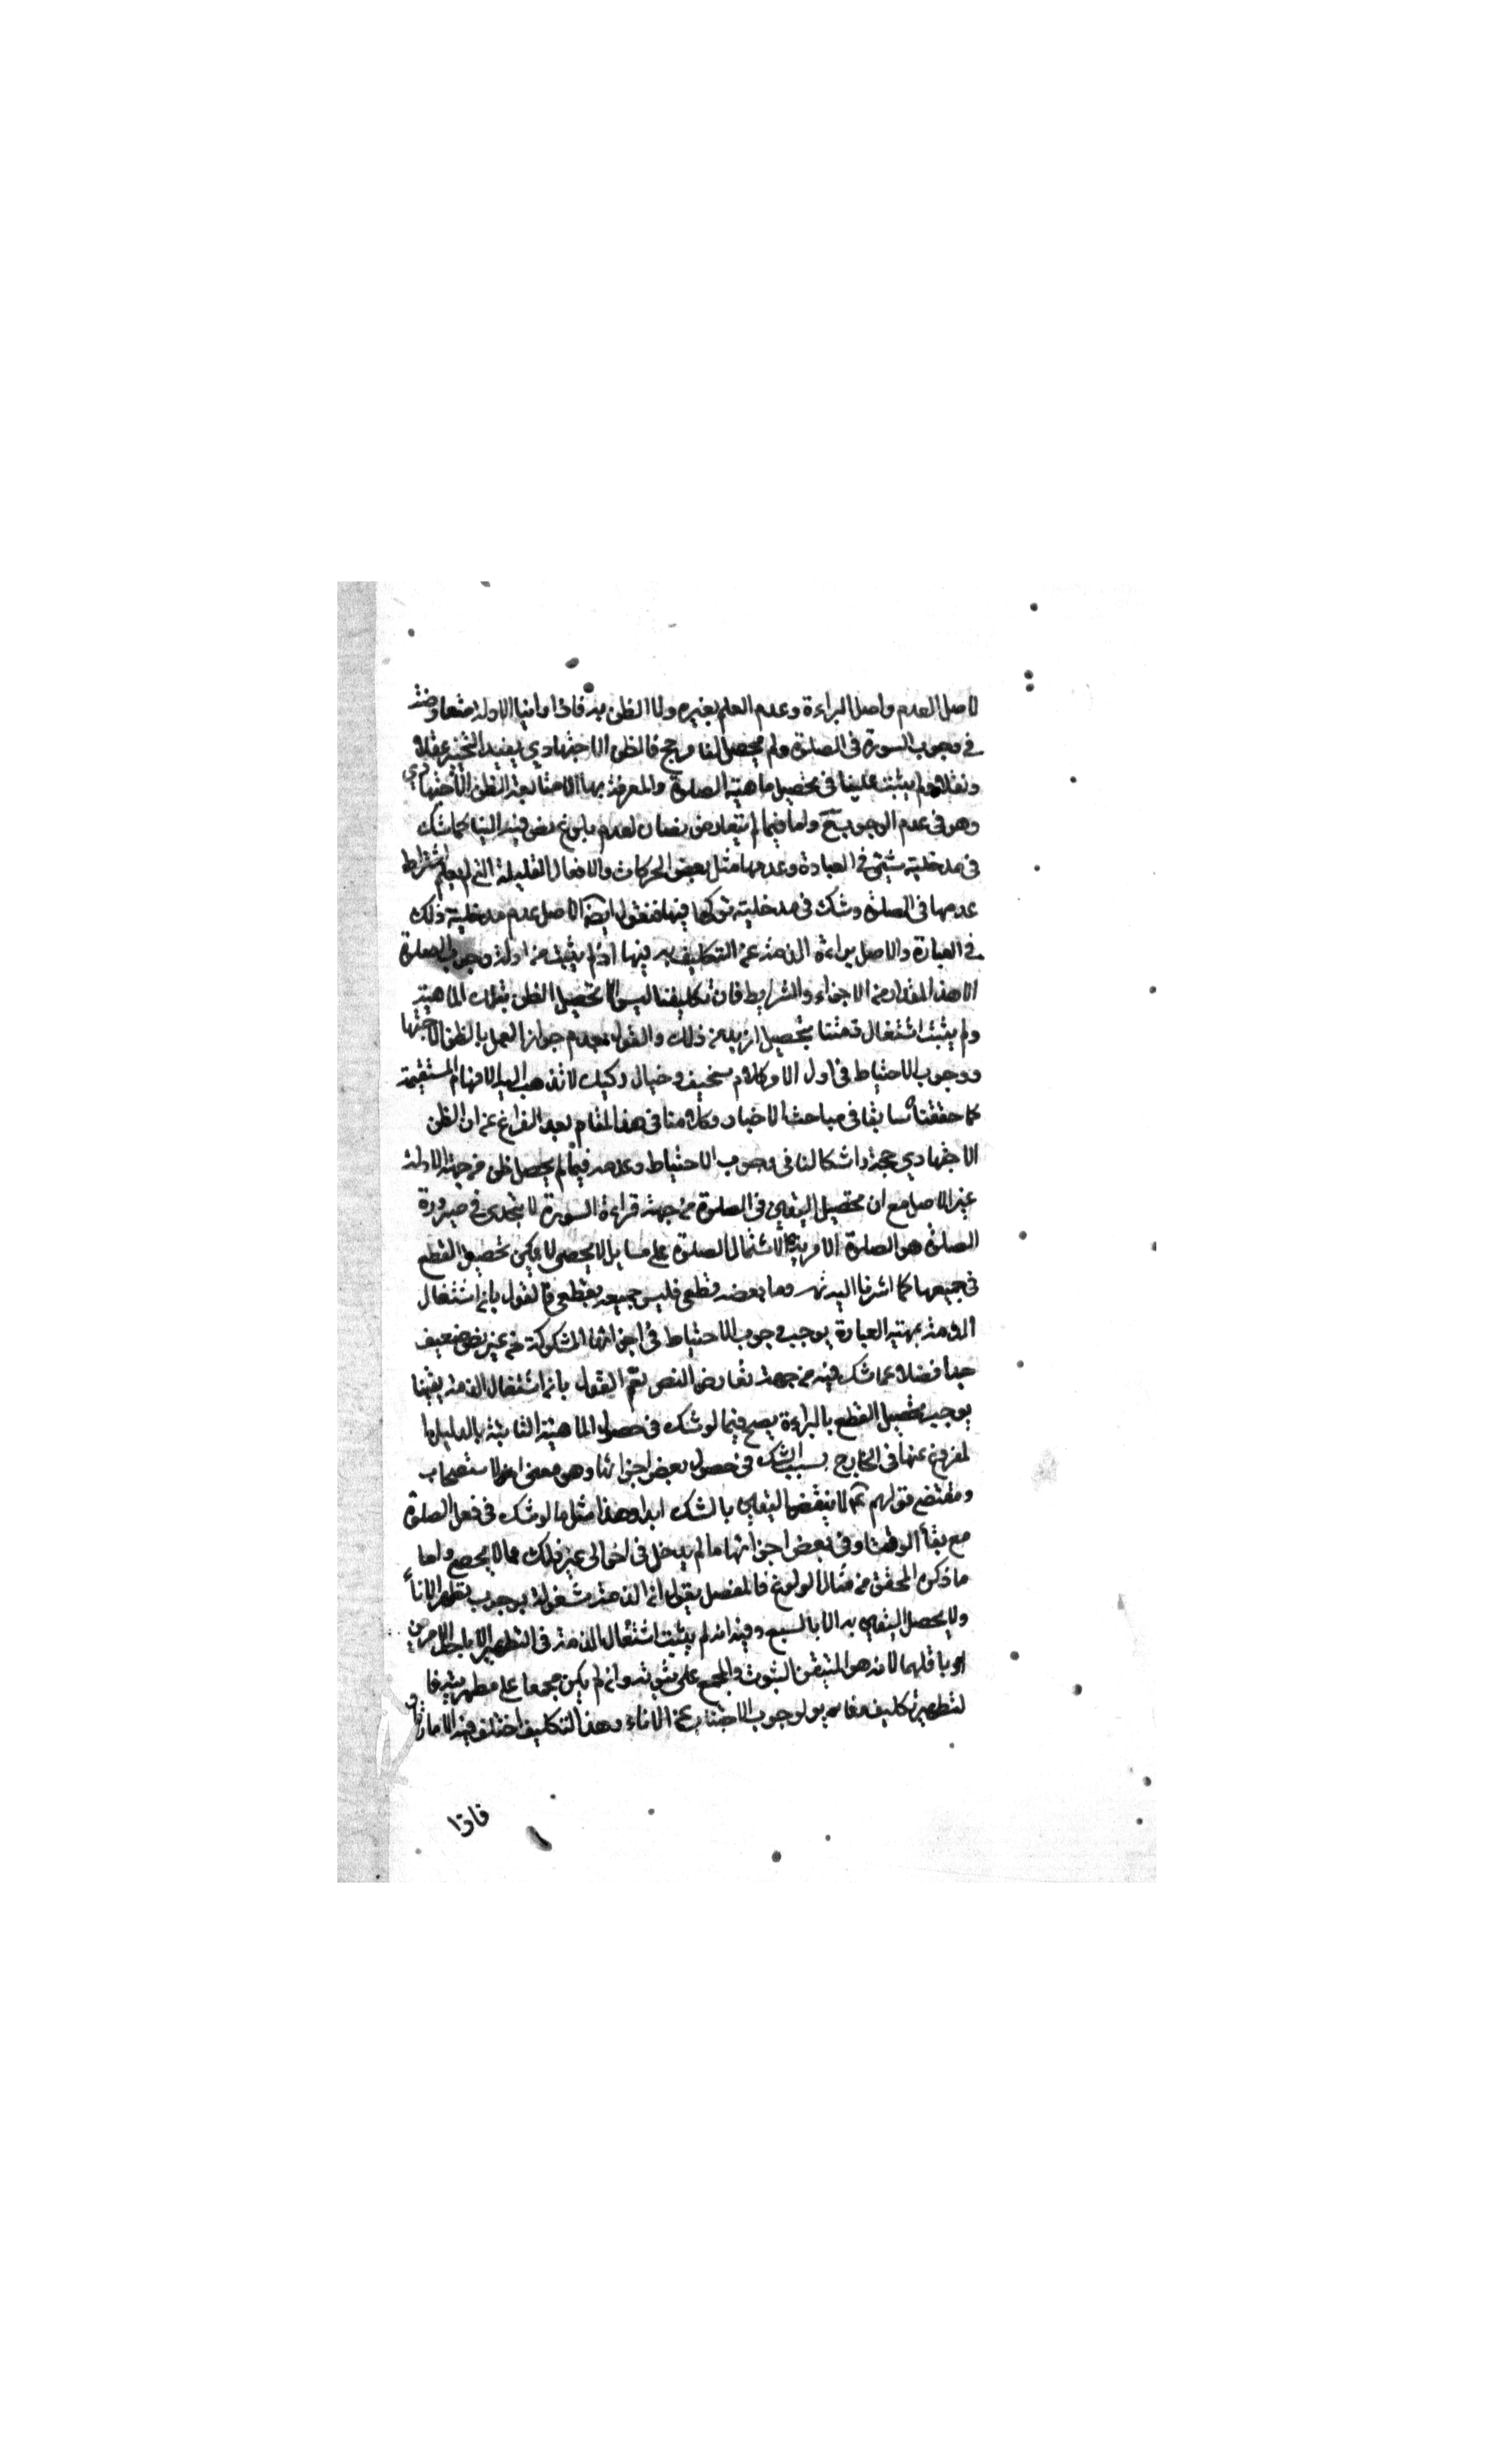 لاصل العدم واصل البراءة وعدم العلم بغيره ولا الظن به فاذا راينا الادلة متعارضة
في وجوب السورة في الصلوة ولم يحصل لنا مرجح فالظن الاجتهادي يفيد التخيير عقلا
ونقلا ولم يثبت علينا في تحصيل ماهية الصلوة والمعرفة بها الا متابعة الظن الاجتهادي
وهو في عدم الوجوب ح واما فيما لم يتعارض نصان لعدم بلوغ نص فيه الينا كما شك
في مدخلية شيء في العبادة وعدمها مثل بعض الحركات والافعال القليلة التي لم يعلم اشتراط
عدمها في الصلوة وشك في مدخلية تركها فيها فنقول ايضا الاصل عدم مدخلية ذلك
في العبادة والاصل براءة الذمة عن التكليف به فيها اذ لم يثبت من ادلة وجوب الصلوة
الا هذا المقدار من الاجزاء والشرايط فان تكليفنا ليس الا تحصيل الظن بتلك الماهية
ولم يثبت اشتغال ذمتنا بتحصيل ازيد من ذلك والقول بعدم جواز العمل بالظن الاجتها
ووجوب الاحتياط في اول الامر كلام سخيف وخيال ركيك لا تذهب اليه الافهام المستقيمة
كما حققنا سابقا في مباحث الاخبار وكلامنا في هذا المقام بعد الفراغ عن ان الظن
الاجتهادي حجة واشكالنا في وجوب الاحتياط وعدمه فيما لم يحصل ظن من جهة الادلة
غير الاصل مع ان تحصيل اليقين في الصلوة من جهة قراءة السورة لا يجدي في صيرورة
الصلوة هو الصلوة الاشتمال الصلوة على مسايل لا يحصى لا يمكن تحصيل القطع
في جميعها كما اشرنا اليه وما بعضه قطعي فليس جميعه بقطعي فالقول بان اشتغال
الذمة بمهية العبادة يوجب وجوب الاحتياط في اجزائها المشكوكة من غير نص ضعيف
جدا فضلا عما شك فيه من جهة تعارض النص نعم القول بان اشتغال الذمة يقينا
يوجب تحصيل القطع بالبراءة يصح فيما لو شك في حصول الماهية الثابتة بالدليل ا
لمفروغ عنها في الخارج بسبب الشك في حصول بعض اجزائها وهو معنى الاستصحاب
ومقتضى قولهم ع لا ينقض اليقين بالشك ابدا وهذا مثل ما لو شك في فعل الصلوة
مع بقاء الوقت او في بعض اجزائها ما لم يدخل في اخر الى غير ذلك مما لا يحصى واما
ما ذكره المحقق من مثال الولوغ فالمفصل يقول ان الذمة مشغولة بوجوب تطهير الاناء
ولا يحصل اليقين به الا بالسبع وفيه انه لم يثبت اشتغال الذمة في التطهير الا باحد الامرين
او باقلهما لانه هو المتيقن الثبوت والمجمع على ثبوته وان لم يكن مجمعا على مطهريته فا
لتطهير تكليف مغاير لوجوب الاجتناب عن الاناء وهذا التكليف اختلف فيه الامارات
فاذا